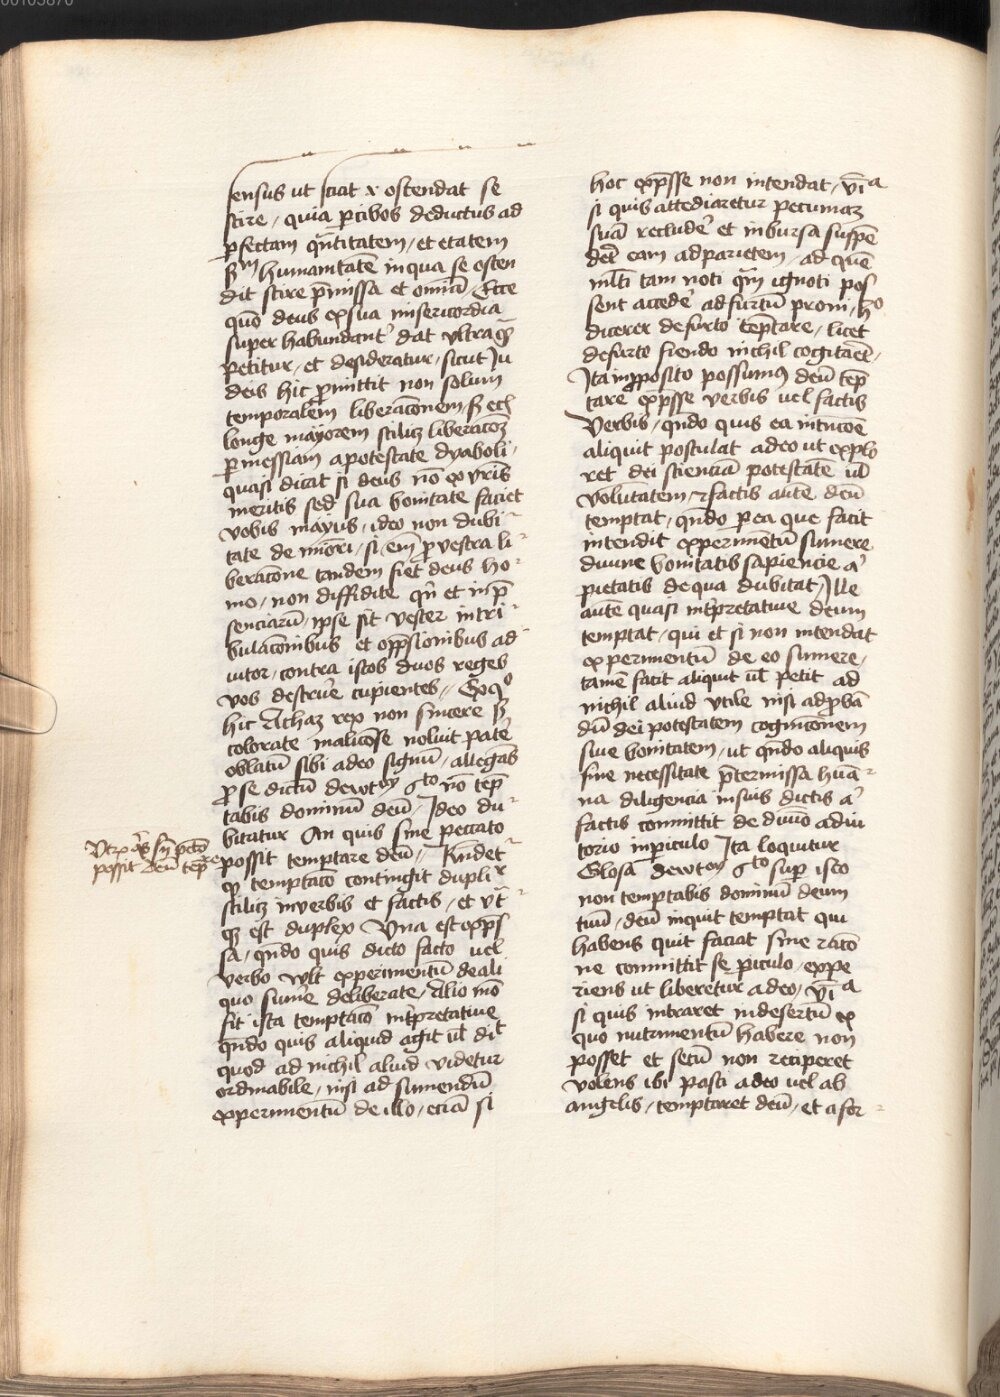 00103870
sensus ut sciat et ostendat se
scire, quia per cibos deductus ad
perfectam quantitatem, et etatem
secundum humanitatē in qua se osten
dit scire p̄missa et omīa, Ecce
quō deus ex sua misericordia
super habundant̓ dat ultra qͣ
petitur, et desideratur, sicut Iu
deis hic p̲mittit non solum
temporalem liberacōnem, sꝫ ecī
longe mayorem scilicꝫ liberacōꝫ
per messiam a potestate dyaboli,
quasi dicat si deus nō ex vr̄is
meritis sed sua bonitate faciet
vobis mayus, ideo non dubi
tate de mīori, si em̄ pro vestra li
beracōne tandem fiet deus ho
mo, non diffidite qn̄ et in p̄
senciarū, ip̄se sit vester in tri
bulacōnibus et opp̄ssionibus ad
iutor, contra istos duos reges
vos destruē cupientes,, Et qꝫ
hic Achaz rex non sincere sꝫ
colorate maliciose noluit petē
oblatū sibi a deo signū, allegās
pro se dictū dewtroy 6to nō tēp
tabis dominū deū, Ideo du
bitatur An quis sine peccato
possit temptare deū, Rn̄det
qꝫ temptacō contingit duplir̄
scilicꝫ in verbis et factis, et vt̄
qꝫ est duplex Una est exp̄s
sa, qn̄do quis dicto facto uel
verbo wlt experimentū de ali
quo sumē deliberate, Alio mō
fit ista temptacō int̓pretatiue
qn̄do quis aliquid agit ul̄ dic̄
quod ad nichil aliud videtur
ordinabile, nisi ad sumendū
experimentū de illo, eciā si
Utrū qs̄ sn̄ pctō
possit deū tēptare
hoc exp̄sse non intendat, vͥ a
si quis attediaretur pecumaꝫ
suā recludē et in bursa suspē
dēt eam ad parietem, ad quē
ml̄ti tam noti qͣm ignoti pos
sent accedē ad furtū proni, hͦ
dicerer de furto tēptare, licet
de furto fiendo nichil cogitaēt,
Ita in pposito possumꝰ deū tēp
tare exp̄sse verbis uel factis
Verbis, qn̄do quis ea intencōe
aliquit postulat a deo ut explo
ret dei scienciā potestatē ul̄
voluntatem, factis autē deū
temptat, qn̄do per ea que facit
intendit experimentū sumere
diuine bonitatis sapiencie a͛
pietatis de qua dubitat, Ille
autē quasi int̓pretatiue deum
temptat, qui et si non intendat
experimentū de eo sumere,
tamē facit aliquit ul̄ petit ad
nichil aliud vtile nisi ad probā
dū dei potestatem cognicōnem
siue bonitatem, ut qn̄do aliquis
sine necessitate p̄termissa huā
na diligencia in suis dictis a͛
factis committit de diuīo adiu
torio in periculo Ita loquitur
Glosa dewtroy 6to super isto
non temptabis dominū deum
tuū, deū inquit temptat qui
habens quit faciat sine racō
ne committit se periculo, expe
riens ut liberetur a deo, vͥ a
si quis intraret in desertū ex
quo nutrimentū habere non
posset et secū non reciperet
volens ibi pasci a deo uel ab
angelis, temptaret deū, et a for